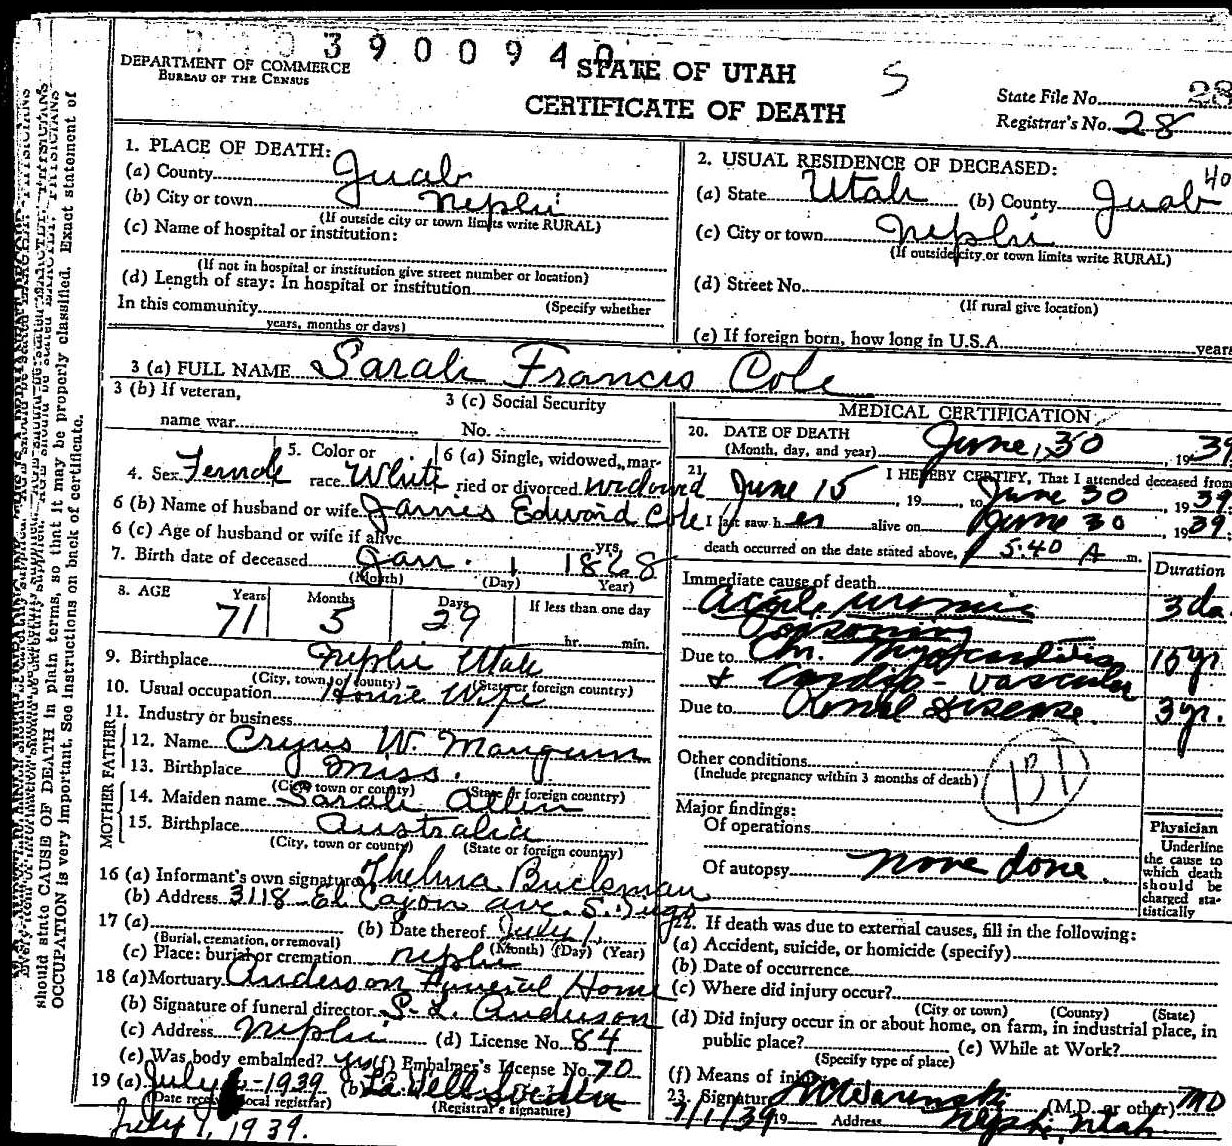 3900940
DEPARTMENT OF COMMERCE
BUREAU OF THE CENSUS
STATE OF UTAH
CERTIFICATE OF DEATH
S
State File No. 28
Registrar's No. 28
1. PLACE OF DEATH:
(a) County Juab
(b) City or town Nephi
(If outside city or town limits write RURAL)
(c) Name of hospital or institution:
(If not in hospital or institution give street number or location)
(d) Length of stay: In hospital or institution
(Specify whether
In this community
years, months or days)
2. USUAL RESIDENCE OF DECEASED: 40
(a) State Utah (b) County Juab
(c) City or town Nephi
(If outside city or town limits write RURAL)
(d) Street No.
(If rural give location)
(e) If foreign born, how long in U.S.A. years
3 (a) FULL NAME Sarah Francis Cole
3 (b) If veteran,
name war
3 (c) Social Security
No.
4. Sex Female
5. Color or
race White
6 (a) Single, widowed, mar-
ried or divorced widowed
6 (b) Name of husband or wife James Edward Cole
6 (c) Age of husband or wife if alive yrs.
7. Birth date of deceased Jan. 1 1868
(Month) (Day) Year)
8. AGE Years Months Days If less than one day
71 5 29
hr. min.
9. Birthplace Nephi Utah
(City, town, or county) (State or foreign country)
10. Usual occupation House Wife
11. Industry or business
FATHER
12. Name Cryus W. Mangum
13. Birthplace Miss.
(City, town or county) (State or foreign country)
MOTHER
14. Maiden name Sarah Allen
15. Birthplace Australia
(City, town or county) (State or foreign country)
16 (a) Informant's own signature Thelma Buckman
(b) Address 3118 El Cajon ave. S. Diego
17 (a) (b) Date thereof July 1,
(Burial, cremation, or removal) (Month) (Day) (Year)
(c) Place: burial or cremation Nephi
18 (a) Mortuary Anderson Funeral Home
(b) Signature of funeral director P. L. Anderson
(c) Address Nephi (d) License No. 84
(e) Was body embalmed? yes (f) Embalmer's License No. 70
19 (a) July -1939 (b)
(Date received local registrar) (Registrar's signature)
July 1, 1939.
MEDICAL CERTIFICATION
20. DATE OF DEATH
(Month, day, and year) June, 30, 1939
21. I HEREBY CERTIFY, That I attended deceased from
June 15, 19 to June 30, 1939
I last saw her alive on June 30, 1939.
death occurred on the date stated above, 5:40 A m.
Duration
Immediate cause of death
Acute uremic 3 da
poisoning
Due to Chr. Myocarditis 15 yr.
& Cardio-vascular
Due to Renal disease. 3 yr.
Other conditions
(Include pregnancy within 3 months of death)
131
Major findings:
Of operations
Of autopsy none done.
Physician
Underline
the cause to
which death
should be
charged sta-
tistically
22. If death was due to external causes, fill in the following:
(a) Accident, suicide, or homicide (specify)
(b) Date of occurrence
(c) Where did injury occur?
(City or town) (County) (State)
(d) Did injury occur in or about home, on farm, in industrial place, in
public place? (e) While at Work?
(Specify type of place)
(f) Means of injury
23. Signature (M.D. or other) MD
7/1/39 19 Address Nephi, Utah.
should state CAUSE OF DEATH in plain terms, so that it may be properly classified. Exact statement of
OCCUPATION is very important. See instructions on back of certificate.